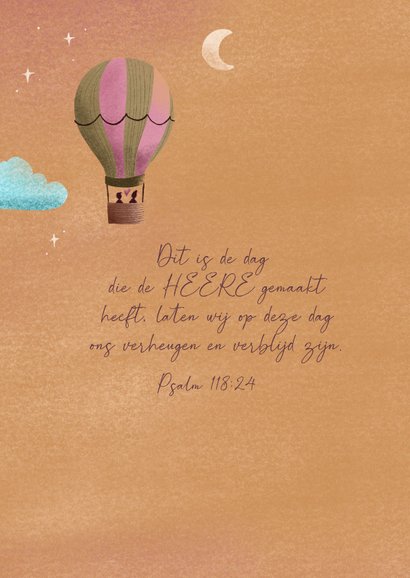 Dit is de dag
die de HEERE gemaakt
heeft, laten wij op deze dag
ons verheugen en verblijd zijn.
Psalm 118:24